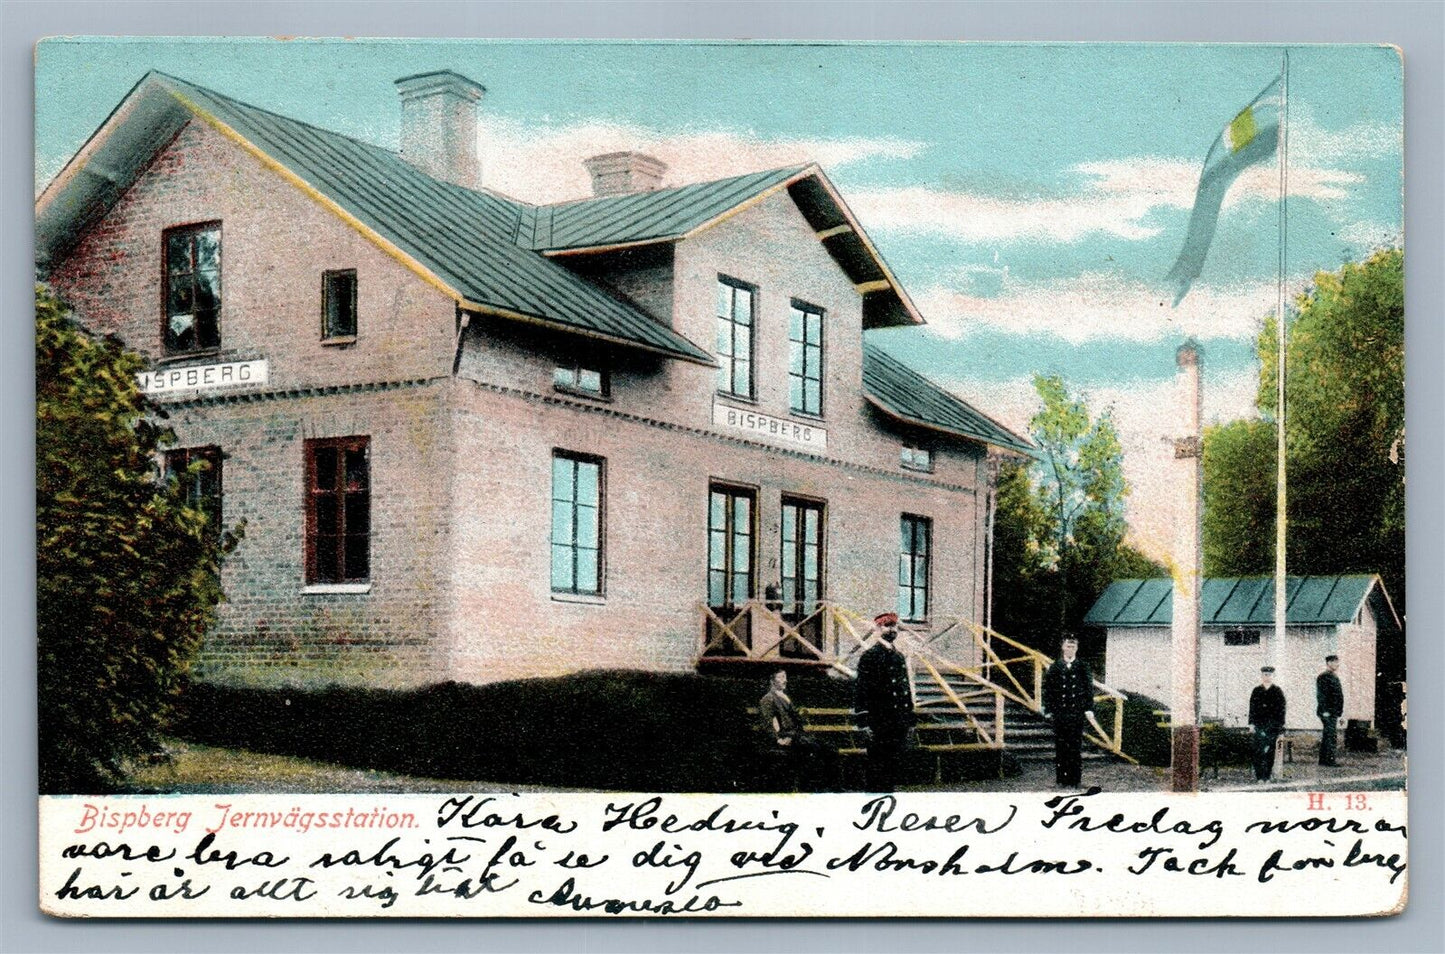 ISPBERG
BISPBERG
Bispberg Jernvägsstation.
H. 13.
Kära Hedvig. Reser Fredag
vore bra roligt få se dig ved Tack för
här är allt sig likt